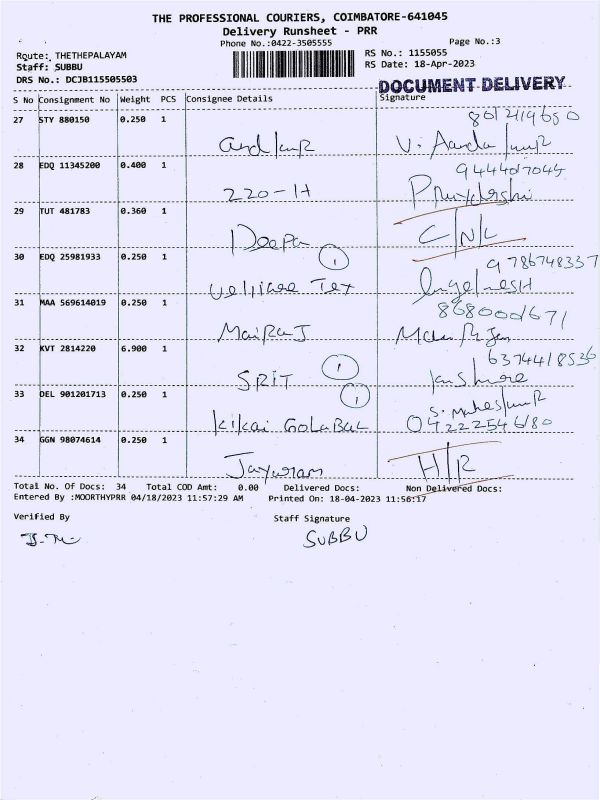 THE PROFESSIONAL COURIERS, COIMBATORE-641045
Delivery Runsheet - PRR
Phone No.:0422-3505555
Page No.:3
Route: THETHEPALAYAM
RS No.: 1155055
Staff: SUBBU
RS Date: 18-Apr-2023
DRS No.: DCJB115505503
DOCUMENT DELIVERY
S No Consignment No Weight PCS Consignee Details Signature
27 STY 880150 0.250 1
28 EDQ 11345200 0.400 1
220-H
29 TUT 481783 0.360 1
Deepa C/N/L
30 EDQ 25981933 0.250 1
1 9786748337
Velliare Tex
31 MAA 569614019 0.250 1
MaiRaJ
32 KVT 2814220 6.900 1
SRIT 1
33 DEL 901201713 0.250 1
1
Kikai GoLaBaL 04222546180
34 GGN 98074614 0.250 1
Jayaram H/R
Total No. Of Docs: 34 Total COD Amt: 0.00 Delivered Docs: Non Delivered Docs:
Entered By :MOORTHYPRR 04/18/2023 11:57:29 AM Printed On: 18-04-2023 11:56:17
Verified By Staff Signature
SUBBU